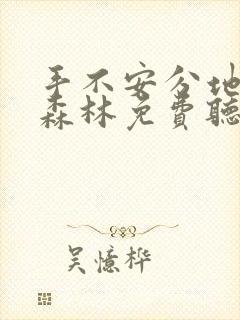 手不安分地
森林免费聽
吴憶桦